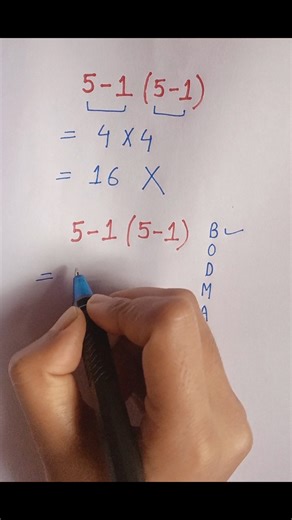 5-1 (5-1)
= 4 x 4
= 16 X
5-1 (5-1)
=
B ✓
O
D
M
A